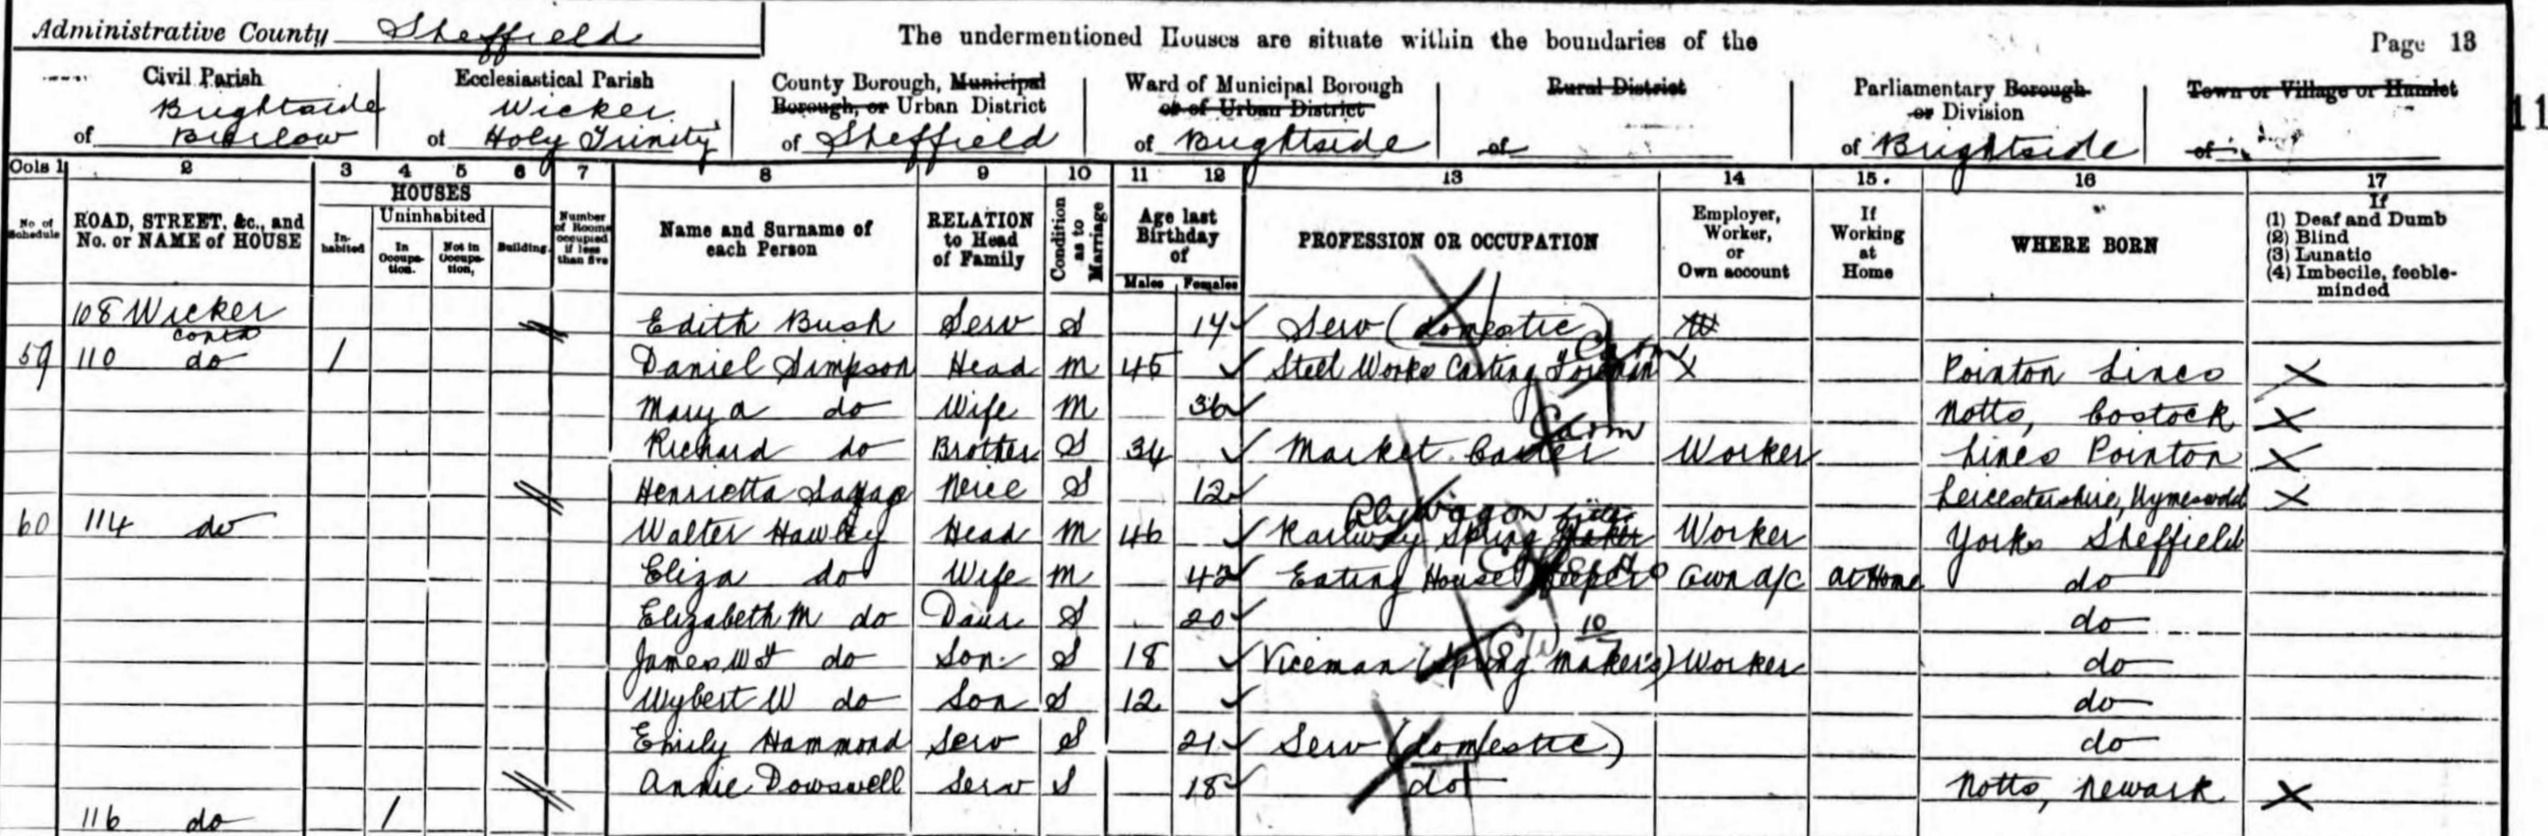 Administrative County Sheffield
The undermentioned Houses are situate within the boundaries of the
Page 13
Civil Parish of Brightside Bierlow
Ecclesiastical Parish of Wicker Holy Trinity
County Borough, Municipal Borough, or Urban District of Sheffield
Ward of Municipal Borough or of Urban District of Brightside
Rural District of
Parliamentary Borough or Division of Brightside
Town or Village or Hamlet of
11
Cols 1 2 3 4 5 6 7 8 9 10 11 12 13 14 15. 16 17
No. of Schedule
ROAD, STREET, &c., and No. or NAME of HOUSE
HOUSES
Inhabited
Uninhabited
In Occupation.
Not in Occupation,
Building.
Number of Rooms occupied if less than five
Name and Surname of each Person
RELATION to Head of Family
Condition as to Marriage
Age last Birthday of
Males Females
PROFESSION OR OCCUPATION
Employer, Worker, or Own account
If Working at Home
WHERE BORN
If
(1) Deaf and Dumb
(2) Blind
(3) Lunatic
(4) Imbecile, feeble-minded
108 Wicker contd Edith Bush Serv S 14 Serv (domestic)
59 110 do 1 Daniel Simpson Head M 45 Steel Works Casting Foreman Pointon Lincs
Mary A do Wife M 36 Notts, Costock
Richard do Brother S 34 Market Carter Worker Lincs Pointon
Henrietta Neice S 12 Leicestershire, Wymeswold
60 114 do Walter Hawley Head M 46 Railway Spring Maker Worker Yorks Sheffield
Eliza do Wife M 42 Eating House Keeper Own a/c At Home do
Elizabeth M do Daur S 20 do
James W do Son S 18 Viceman (Spring Makers) Worker do
Wybert W do Son S 12 do
Emily Hammond Serv S 21 Serv (domestic) do
Annie Dowswell Serv S 18 do Notts, Newark
116 do 1